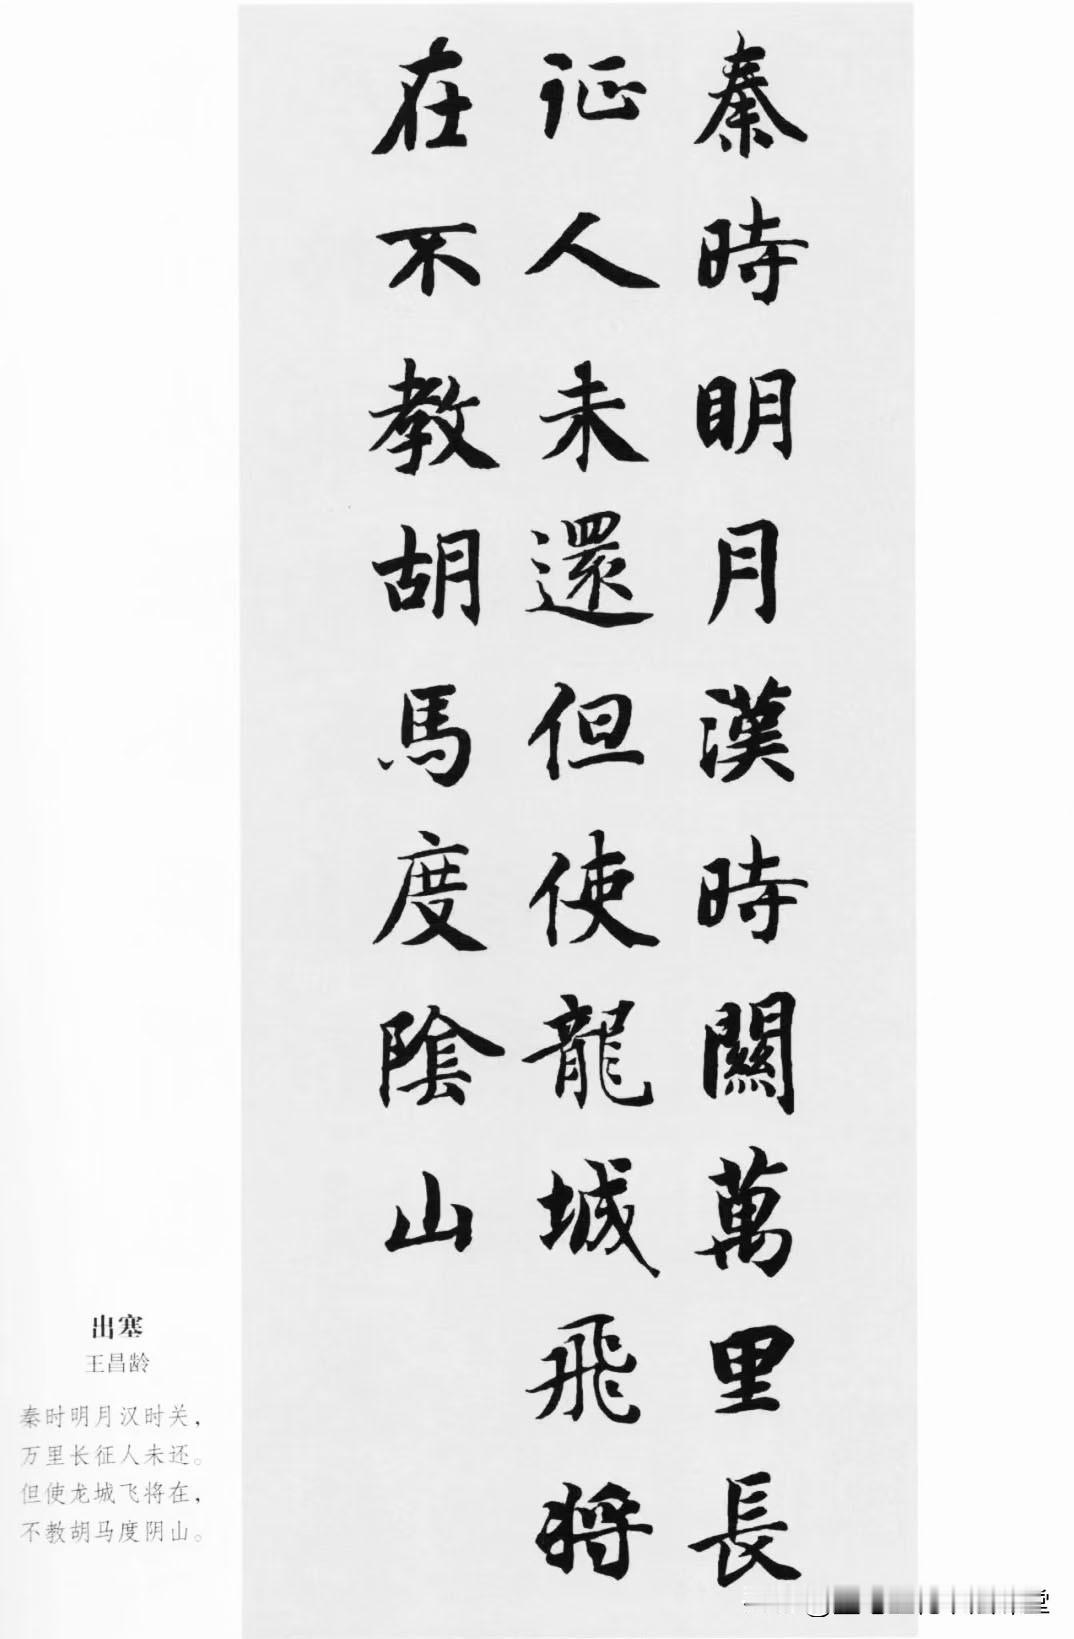 秦時明月漢時關萬里長
征人未還但使龍城飛将
在不教胡馬度陰山
出塞
王昌龄
秦时明月汉时关，
万里长征人未还。
但使龙城飞将在，
不教胡马度阴山。